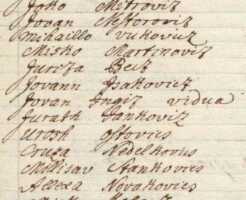 Joko Metroviz
Jovan Mestorovis
Mihaillo Vukoviz
Misko Martinoviz
Jurcza Beiz
Jovann Isakoviz
Jovan Ingiz vidua
Jurath Jankoviz
Urosh ostovics
Cruza Nedelkovus
Millisav Stankovics
Alexa Novakovics